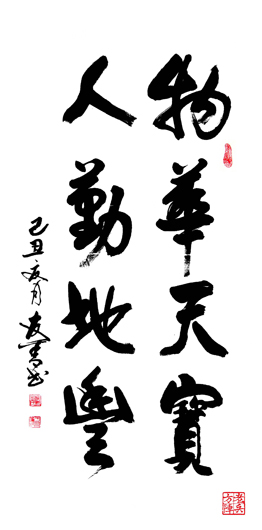 物華天寶
人勤地豐
己丑夏月